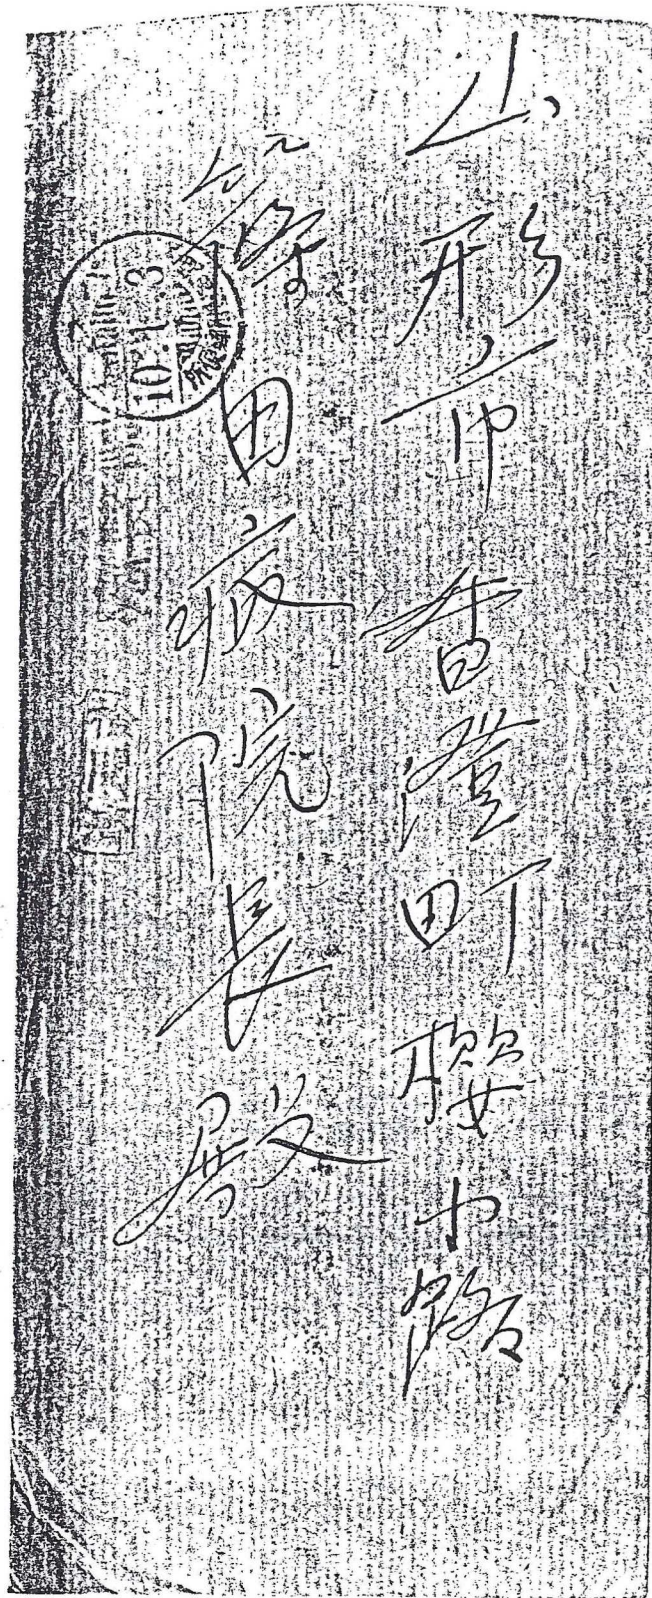 山形市香澄町櫻小路
篠田病院長殿
10.1.3